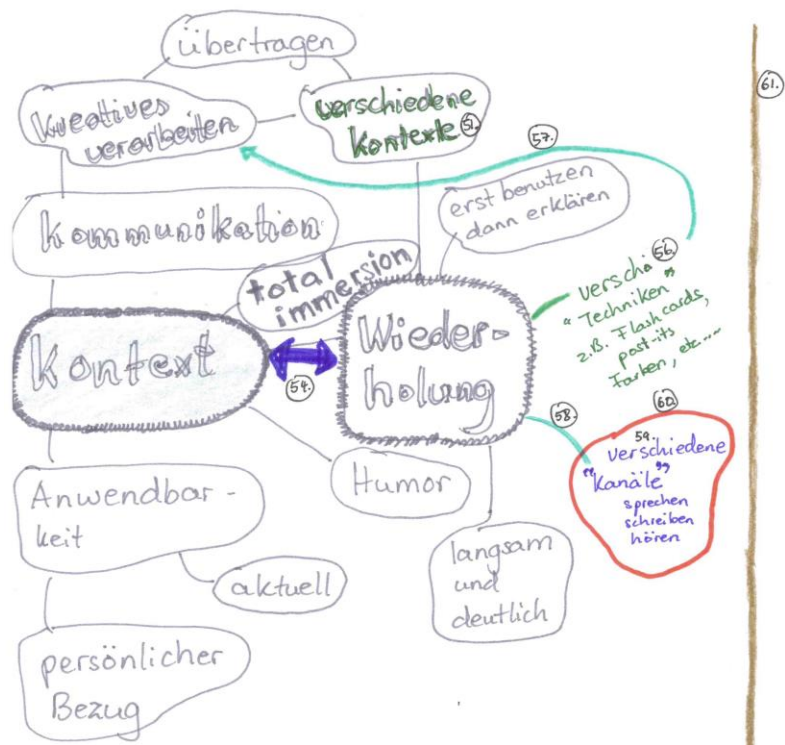 übertragen
kreatives
verarbeiten
verschiedene
kontexte 51.
57.
61.
erst benutzen
dann erklären
kommunikation
total
immersion
56.
versch.
"Techniken"
z.B. Flashcards,
post-its
Farben, etc....
Kontext
54.
Wieder-
holung
58.
60.
59.
verschiedene
"Kanäle"
sprechen
schreiben
hören
Humor
Anwendbar-
keit
aktuell
langsam
und
deutlich
persönlicher
Bezug